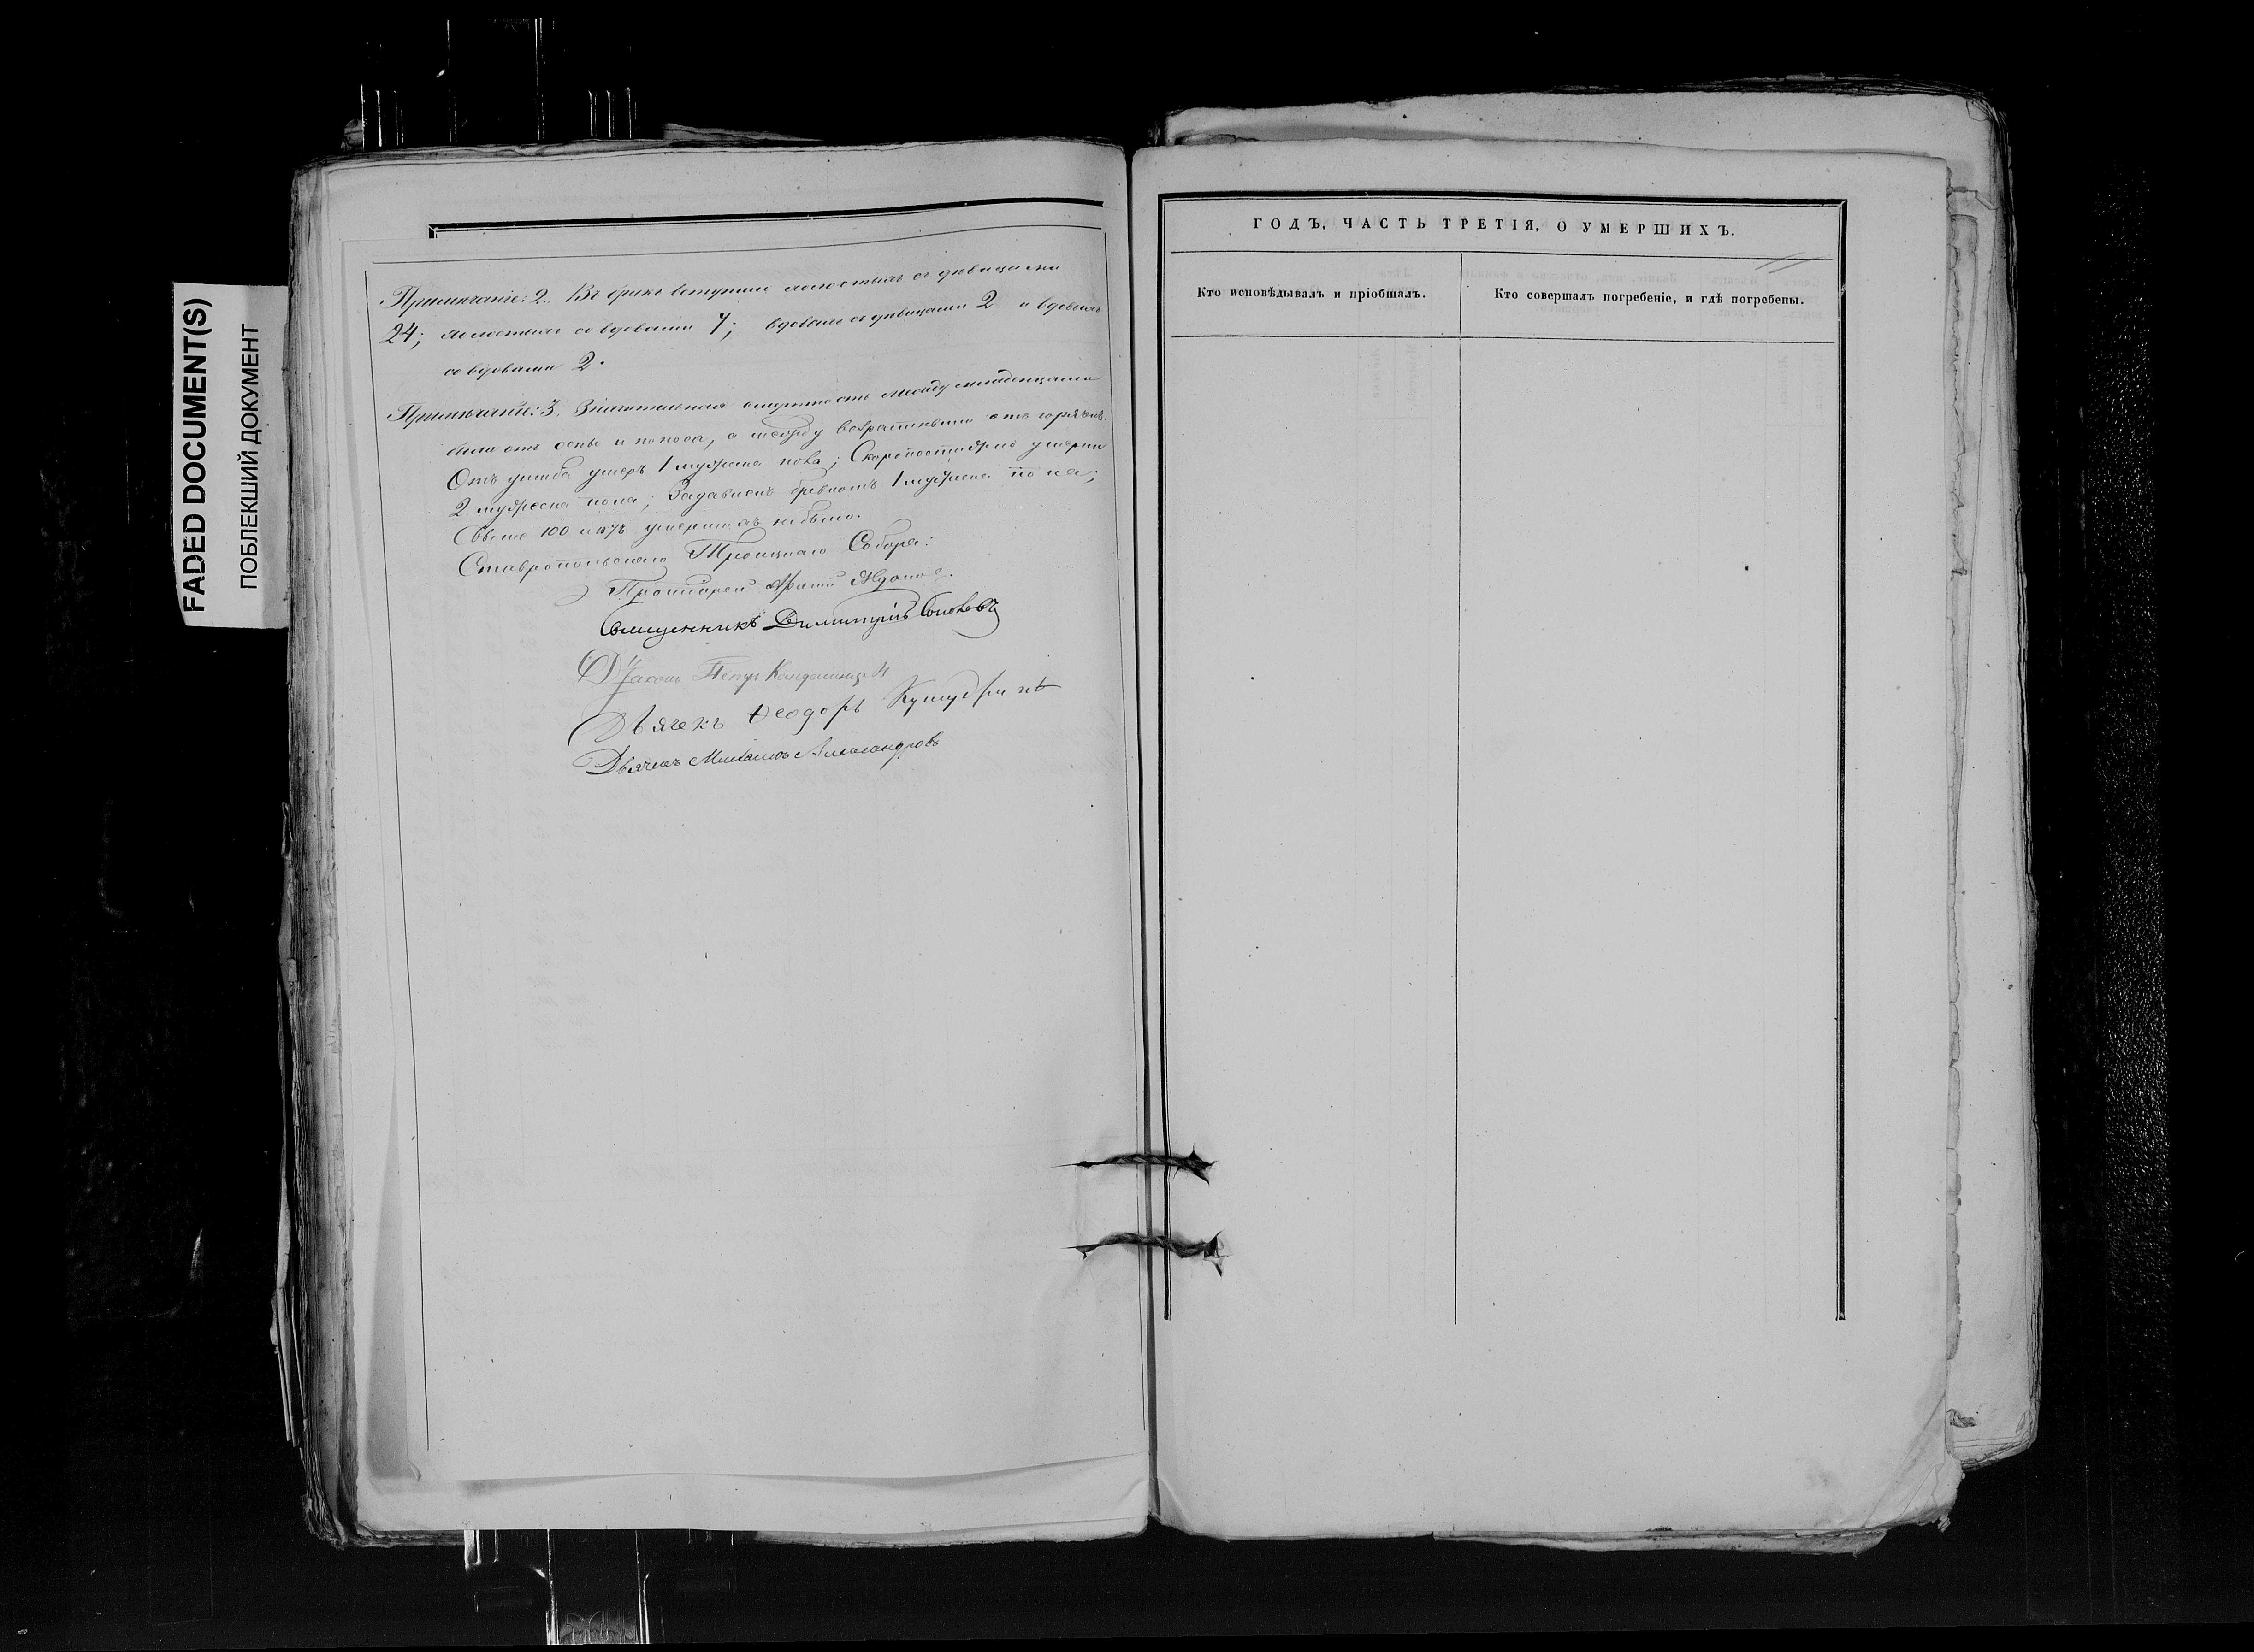 FADED DOCUMENT(S)
ПОБЛЕКШИЙ ДОКУМЕНТ
Примѣчаніе: 2. Въ бракъ вступило холостыхъ съ дѣвицами
24; холостыхъ со вдовами 7; вдовыхъ съ дѣвицами 2 и вдовыхъ
со вдовами 2.
Примѣчаніе: 3. Значительная смертность между младенцами
была отъ оспы и поноса, а между возрастными отъ горячки.
Отъ ушиба умеръ 1 мужеска пола; Скоропостижно умерли
2 мужеска пола; Задавленъ бревномъ 1 мужеска пола;
Свыше 100 лѣтъ умершихъ не было.
Ставропольскаго Троицкаго Собора:
Протоіерей
Священникъ Димитрій
Діаконъ Петръ
Дьячекъ Ѳеодоръ
Дьячекъ Михаилъ Александровъ
ГОДЪ, ЧАСТЬ ТРЕТІЯ, О УМЕРШИХЪ.
Кто исповѣдывалъ и пріобщалъ.
Кто совершалъ погребеніе, и гдѣ погребены.